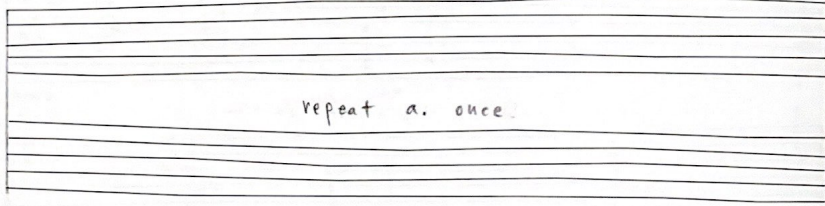 repeat a. once.